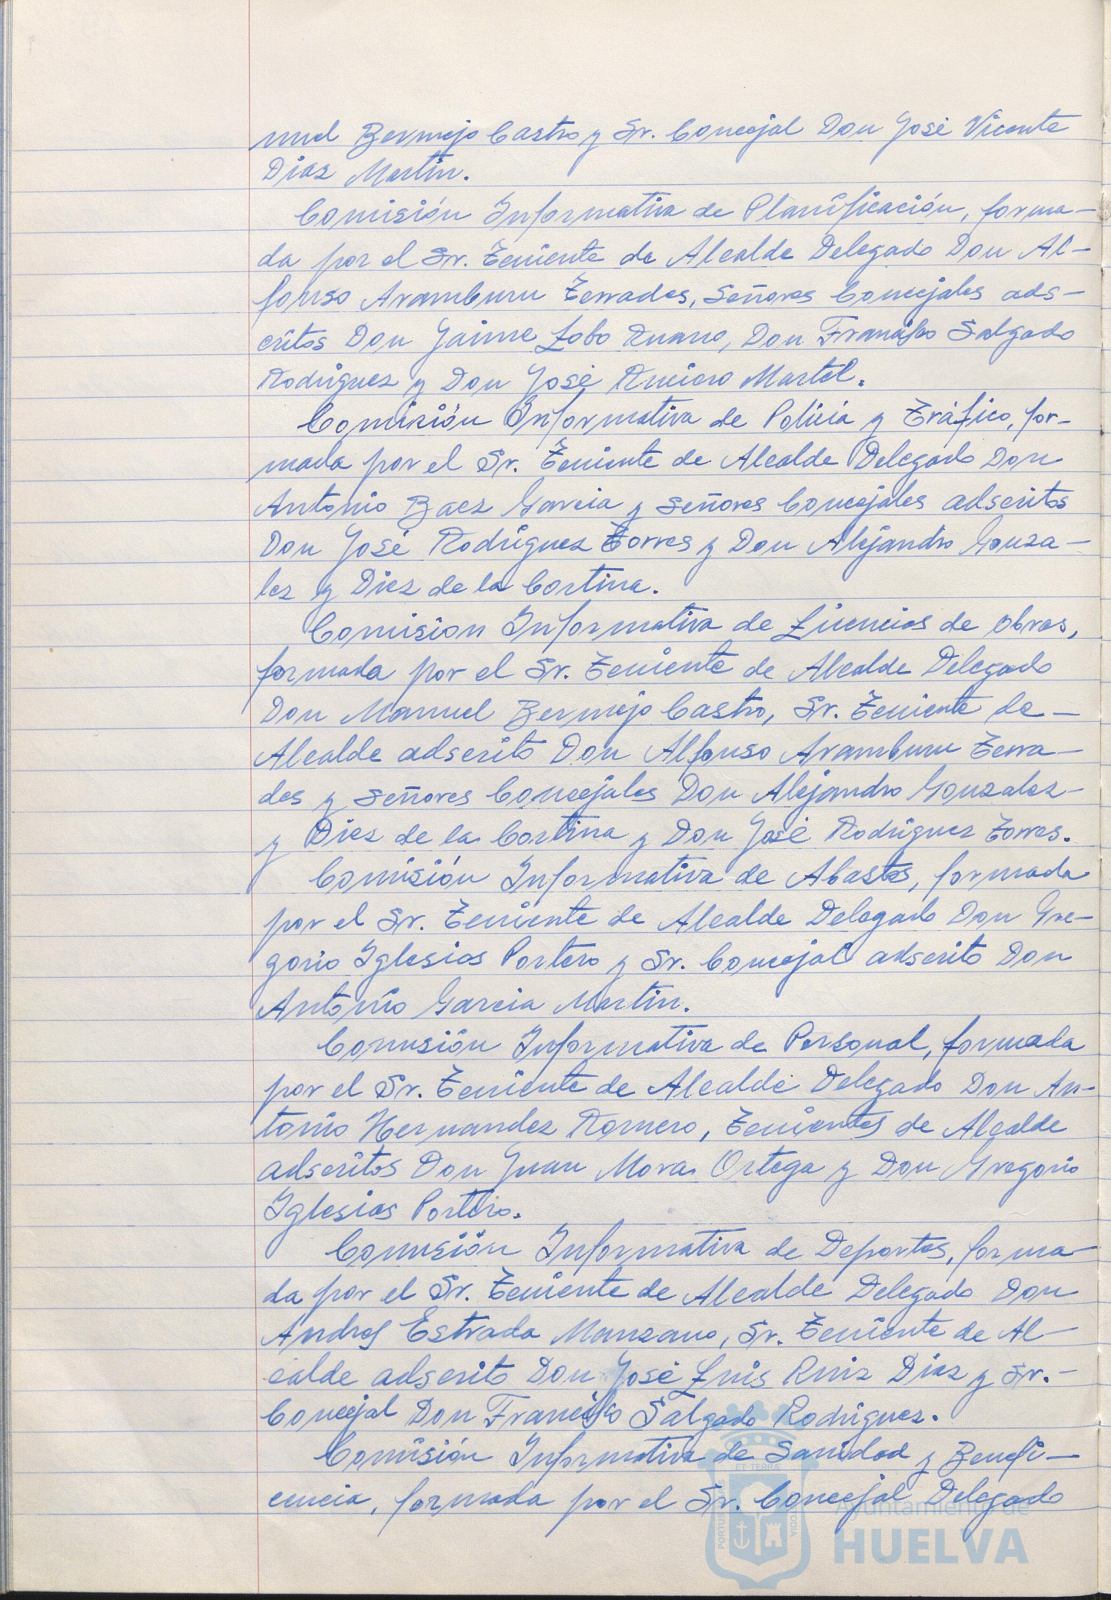 nuel Bermejo Castro y Sr. Concejal Don José Vicente
Diaz Martin.
Comisión Informativa de Planificación, forma-
da por el Sr. Teniente de Alcalde Delegado Don Al-
fonso Aramburu Terrades, Señores Concejales ads-
critos Don Jaime Lobo Ruano, Don Francisco Salgado
Rodriguez y Don José Rucioro Martel.
Comisión Informativa de Policia y Tráfico, for-
mada por el Sr. Teniente de Alcalde Delegado Don
Antonio Baez Garcia y Señores Concejales adscritos
Don José Rodriguez Torres y Don Alejandro Gonza-
lez y Diez de la Cortina.
Comision Informativa de Licencias de Obras,
formada por el Sr. Teniente de Alcalde Delegado
Don Manuel Bermejo Castro, Sr. Teniente de-
Alcalde adscrito Don Alfonso Aramburu Terra-
des y Señores Concejales Don Alejandro Gonzalez-
y Diez de la Cortina y Don José Rodriguez Torres.
Comisión Informativa de Abastos, formada
por el Sr. Teniente de Alcalde Delegado Don Gre-
gorio Iglesias Portero y Sr. Concejal adscrito Don
Antonio Garcia Martin.
Comisión Informativa de Personal, formada
por el Sr. Teniente de Alcalde Delegado Don An-
tonio Hernandez Romero, Tenientes de Alcalde
adscritos Don Juan Mora Ortega y Don Gregorio
Iglesias Portero.
Comisión Informativa de Deportes, forma-
da por el Sr. Teniente de Alcalde Delegado Don
Andres Estrada Manzano, Sr. Teniente de Al-
calde adscrito Don José Luis Ruiz Diaz y Sr.-
Concejal Don Francisco Salgado Rodriguez.
Comisión Informativa de Sanidad y Benefi-
cencia, formada por el Sr. Concejal Delegado
Ayuntamiento de
HUELVA